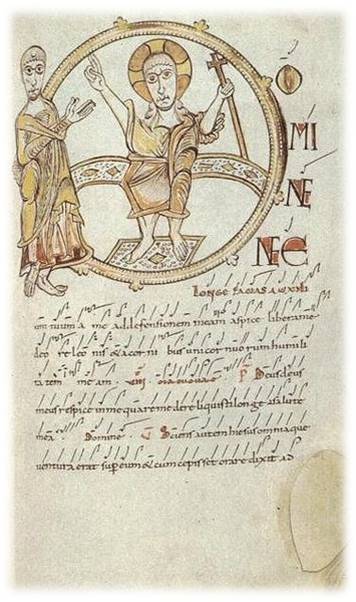 O
MI
NE
NE
Longe facias auxili
um tuum a me addefensionem meam aspice liberame
deo re leo nis & acorni bus unicor nuorum humili
tatem meam. P Deusdeus
meus respice inme quare me dereliquisti longe asalute
mea. Domine. Sciens autem hiesus omnia que
ventura erat super eum & cum cepisset orare dixit ad